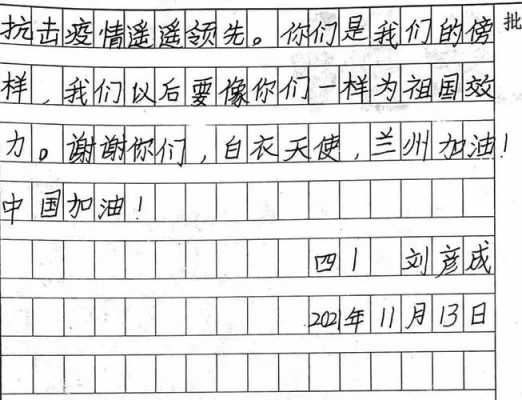 抗击疫情遥遥领先。你们是我们的傍
样，我们以后要像你们一样为祖国效
力。谢谢你们，白衣天使，兰州加油！
中国加油！
四1 刘彦成
2021年11月13日
批